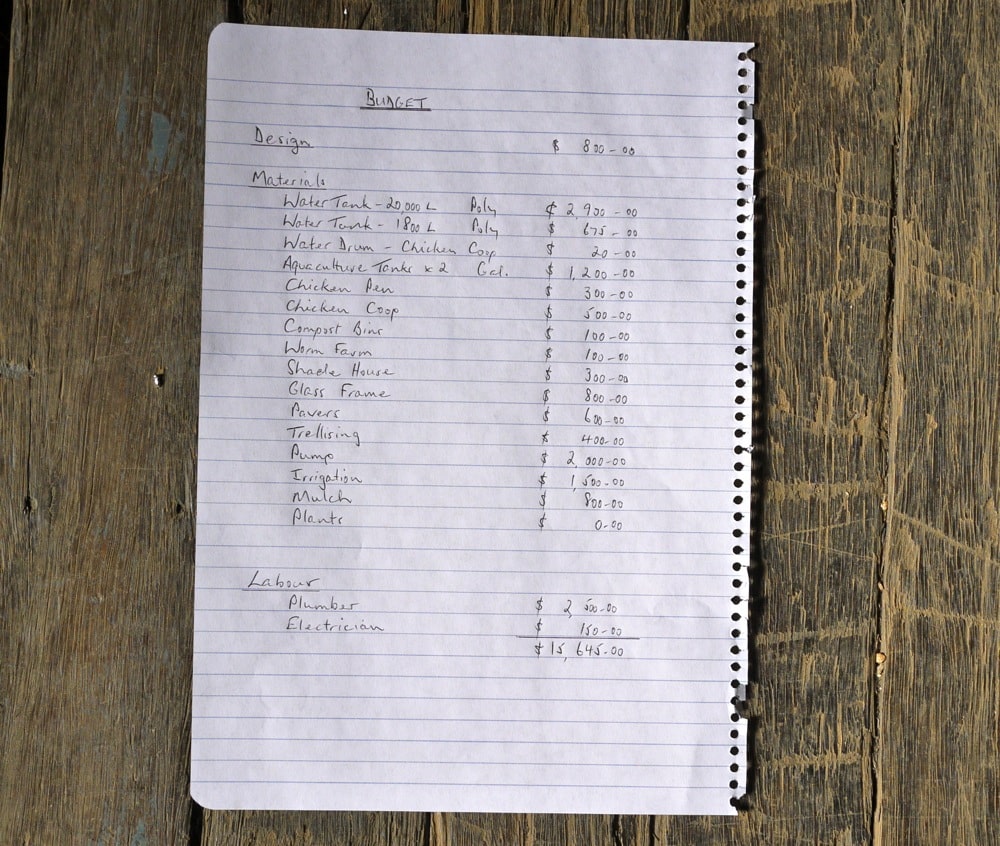 BUDGET
Design $ 800-00
Materials
Water Tank - 20,000 L Poly $ 2,900-00
Water Tank - 1800 L Poly $ 675-00
Water Drum - Chicken Coop $ 20-00
Aquaculture Tanks x 2 Gal. $ 1,200-00
Chicken Pen $ 300-00
Chicken Coop $ 500-00
Compost Bins $ 100-00
Worm Farm $ 100-00
Shade House $ 300-00
Glass Frame $ 800-00
Pavers $ 600-00
Trellising $ 400-00
Pump $ 2,000-00
Irrigation $ 1,500-00
Mulch $ 800-00
Plants $ 0-00
Labour
Plumber $ 2,500-00
Electrician $ 150-00
$ 15,645-00